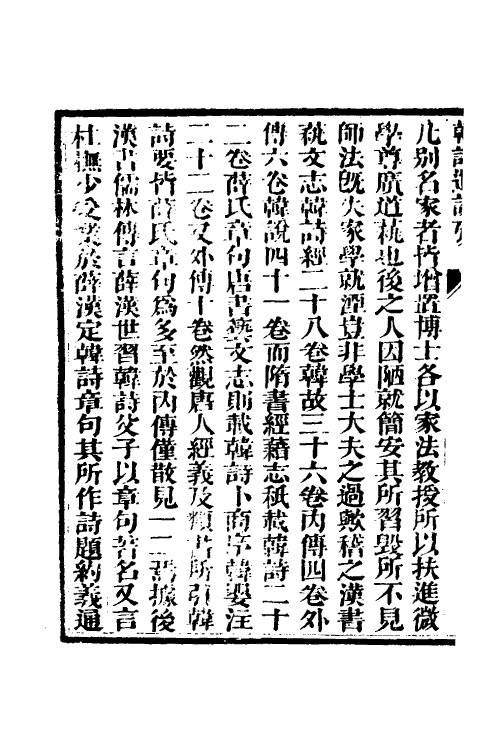 韓詩遺說序
凡別名家者皆增置博士各以家法教授所以扶進微
學尊廣道蓺也後之人因陋就簡安其所習毀所不見
師法旣失家學就湮豈非學士大夫之過歟稽之漢書
蓺文志韓詩經二十八卷韓故三十六卷內傳四卷外
傳六卷韓說四十一卷而隋書經籍志秪載韓詩二十
二卷薛氏章句唐書藝文志則載韓詩卜商序韓嬰注
二十二卷又外傳十卷然觀唐人經義及類書所引韓
詩要皆薛氏章句爲多至於內傳僅散見一二焉據後
漢書儒林傳言薛漢世習韓詩父子以章句著名又言
杜撫少受業於薛漢定韓詩章句其所作詩題約義通